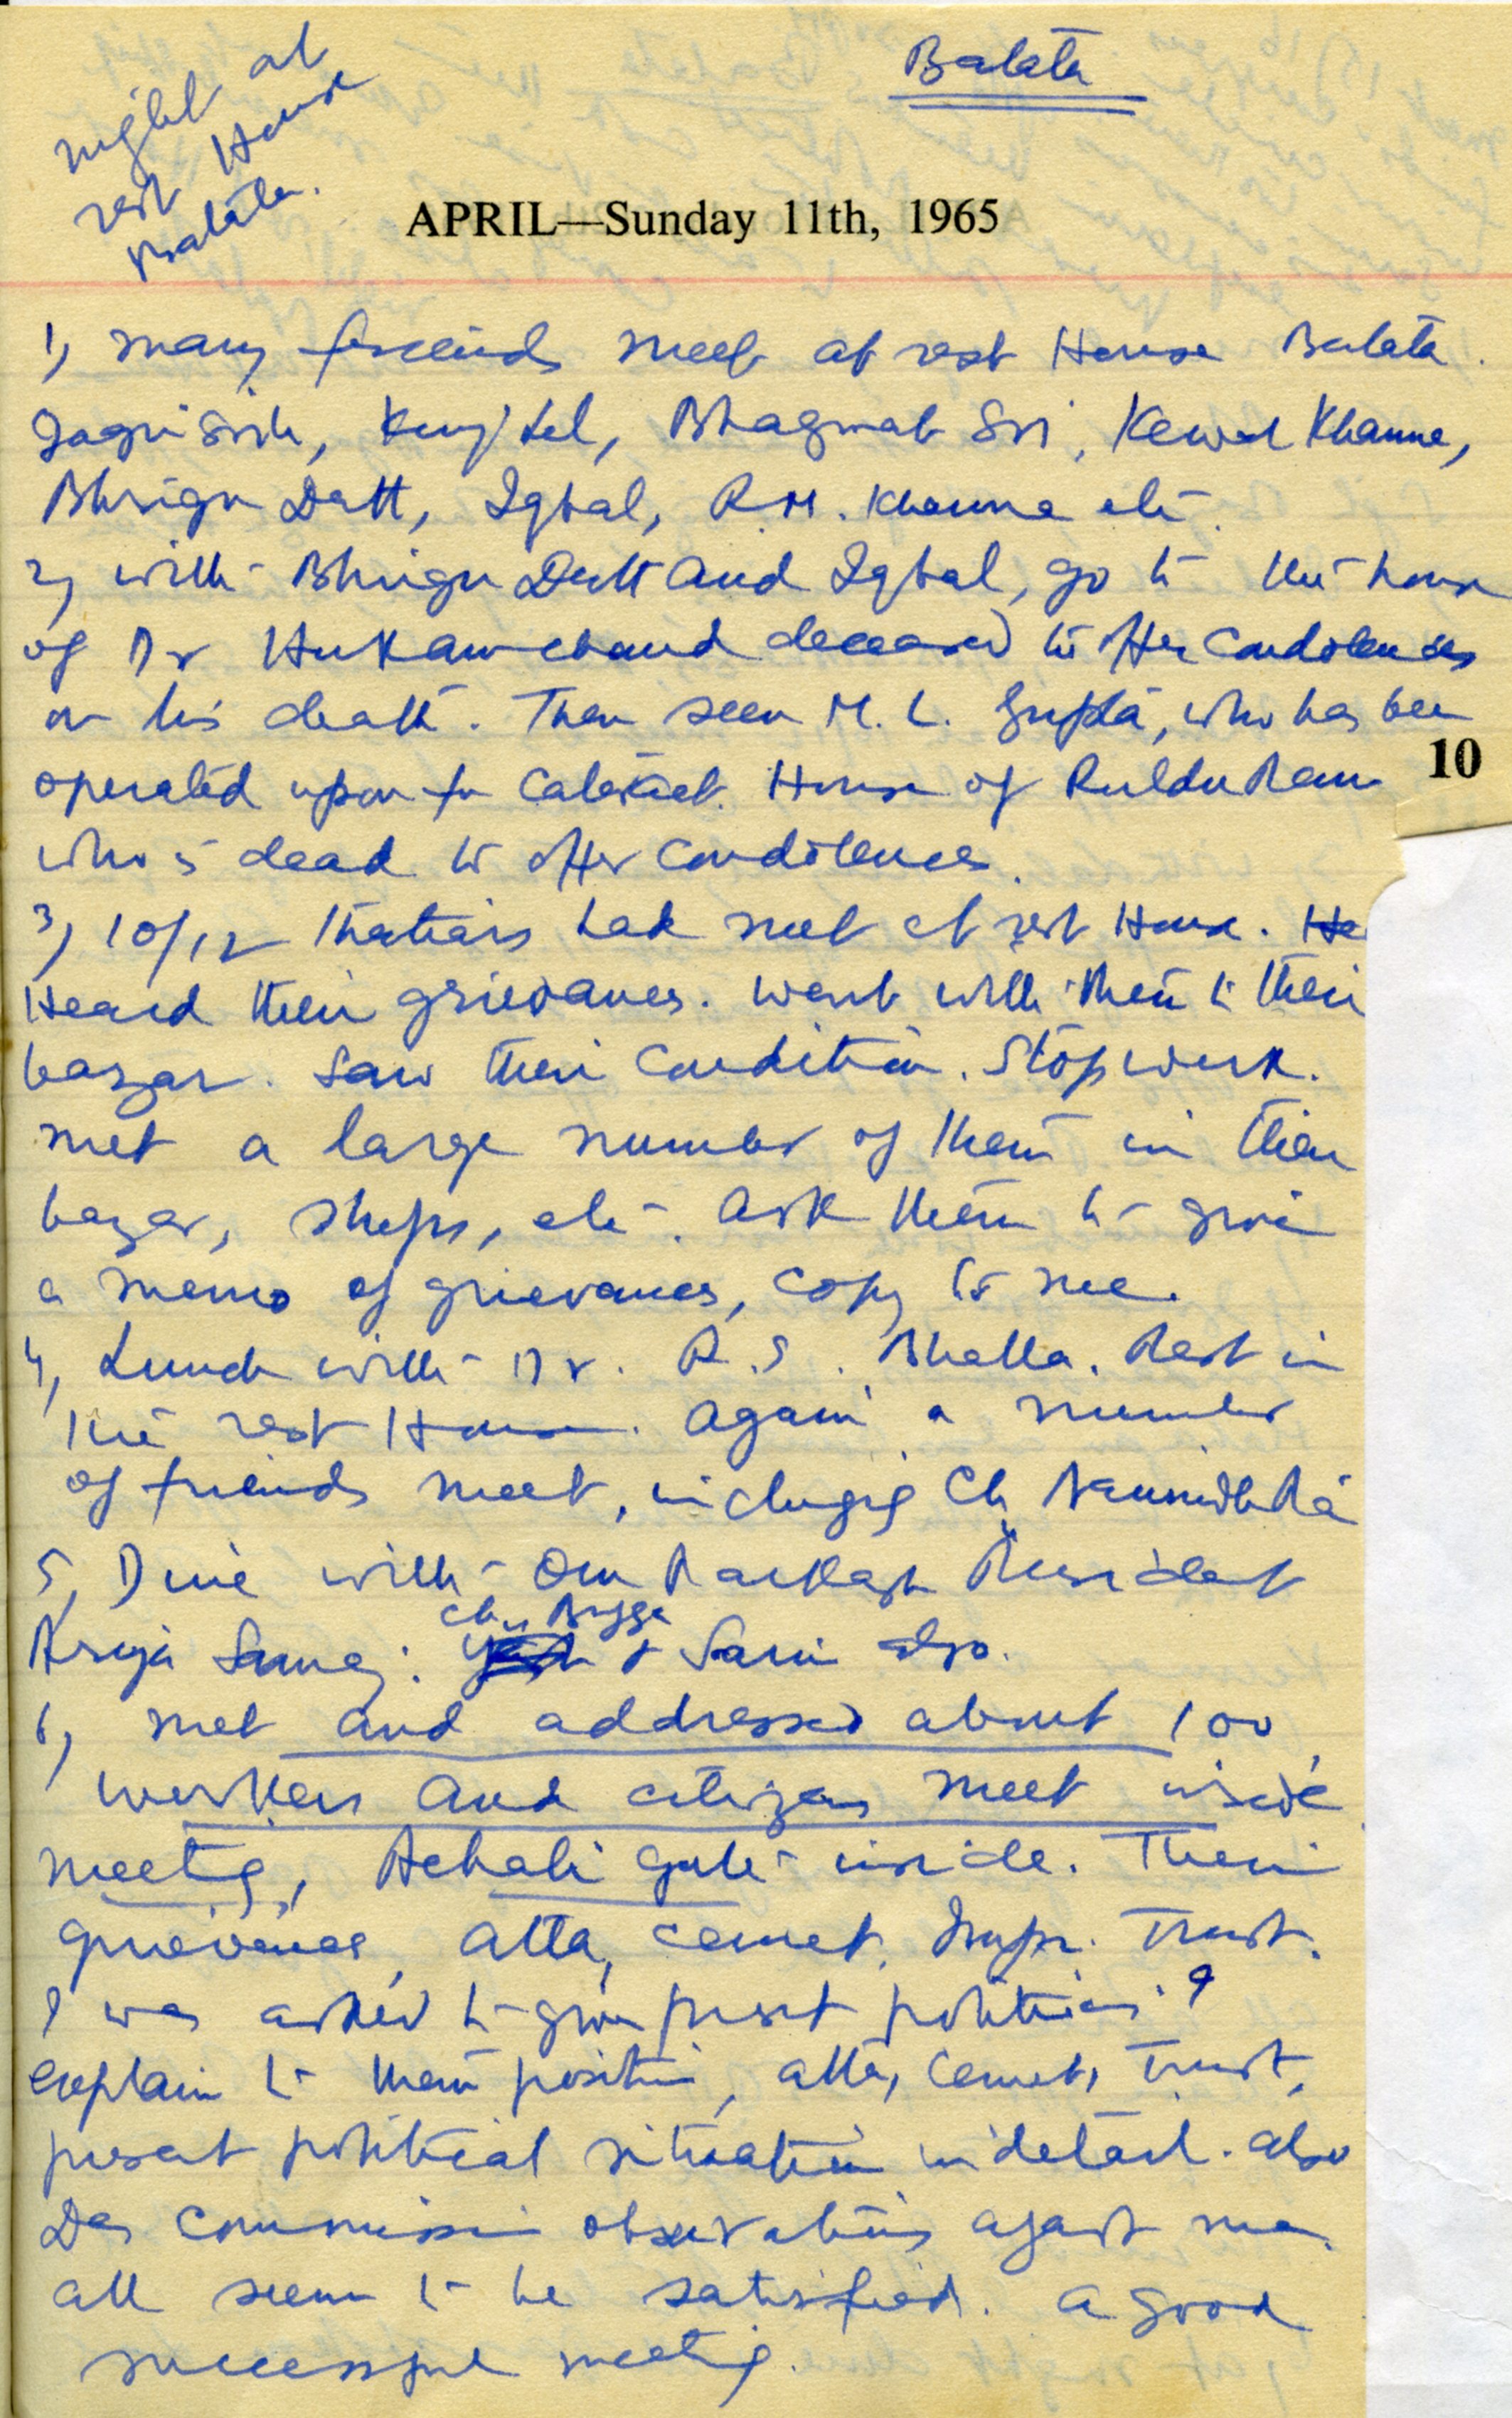 Batala
night at
rest House
Batala.
APRIL—Sunday 11th, 1965
1) many friends meet at rest House Batala.
Bhagwat Sri, Kewal Khanna,
Bhrigu Datt, Iqbal, R.M. Khanna etc.
2) with Bhrigu Datt and Iqbal, go to the house
of Dr Hukamchand deceased to offer condolences
on his death. Then seen M. L. Gupta, who has been
operated upon for cataract. House of Ruldu Ram
10
who is dead to offer condolences.
3) 10/12 Thatiars had met at rest House. He
Heard their grievances. went with them to their
bazar. Saw their condition. Stop work.
met a large number of them in their
bazar, shops, etc. ask them to give
a memo of grievances, copy to me.
4, Lunch with Dr. R.S. Bhalla. Rest in
the rest House. again a number
of friends meet, including Ch
5, Dine with Om Parkash President
Arya Samaj. Ch. Bugga & Sarin also.
6, met and addressed about 100
workers and citizens meet inside
meeting, Achali gate inside. Their
grievances, atta, cemet, Impr. Trust.
I was asked to give preset politics?
explain to them position, atta, cemet, Trust,
preset political situation in detail. also
Das Commission observations against me.
all seem to be satisfied. a good
successful meeting.